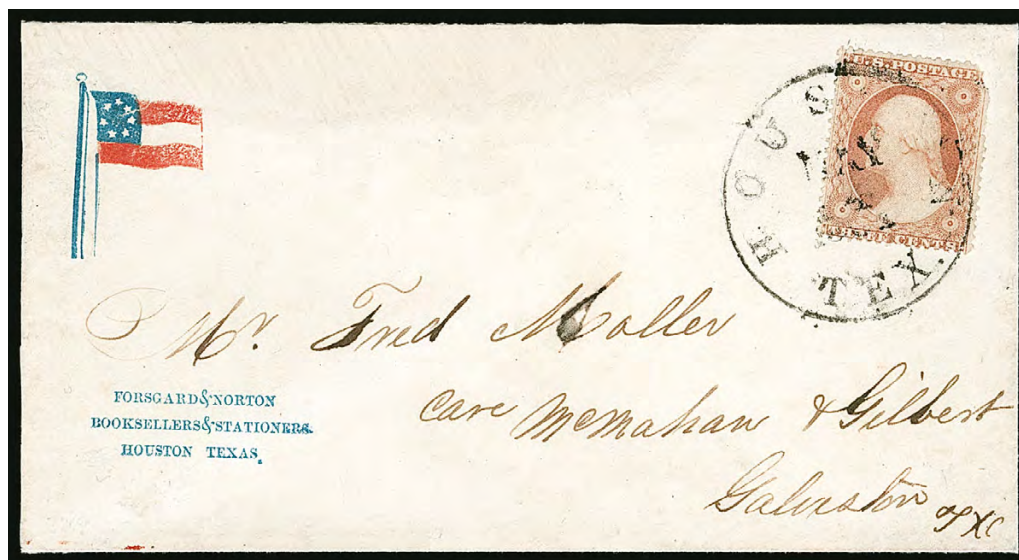 U.S. POSTAGE
THREE CENTS.
HOUSTON TEX.
MAY
Mr. Fred Moller
care McMahan & Gilbert
Galveston
FORSGARD & NORTON
BOOKSELLERS & STATIONERS.
HOUSTON TEXAS.